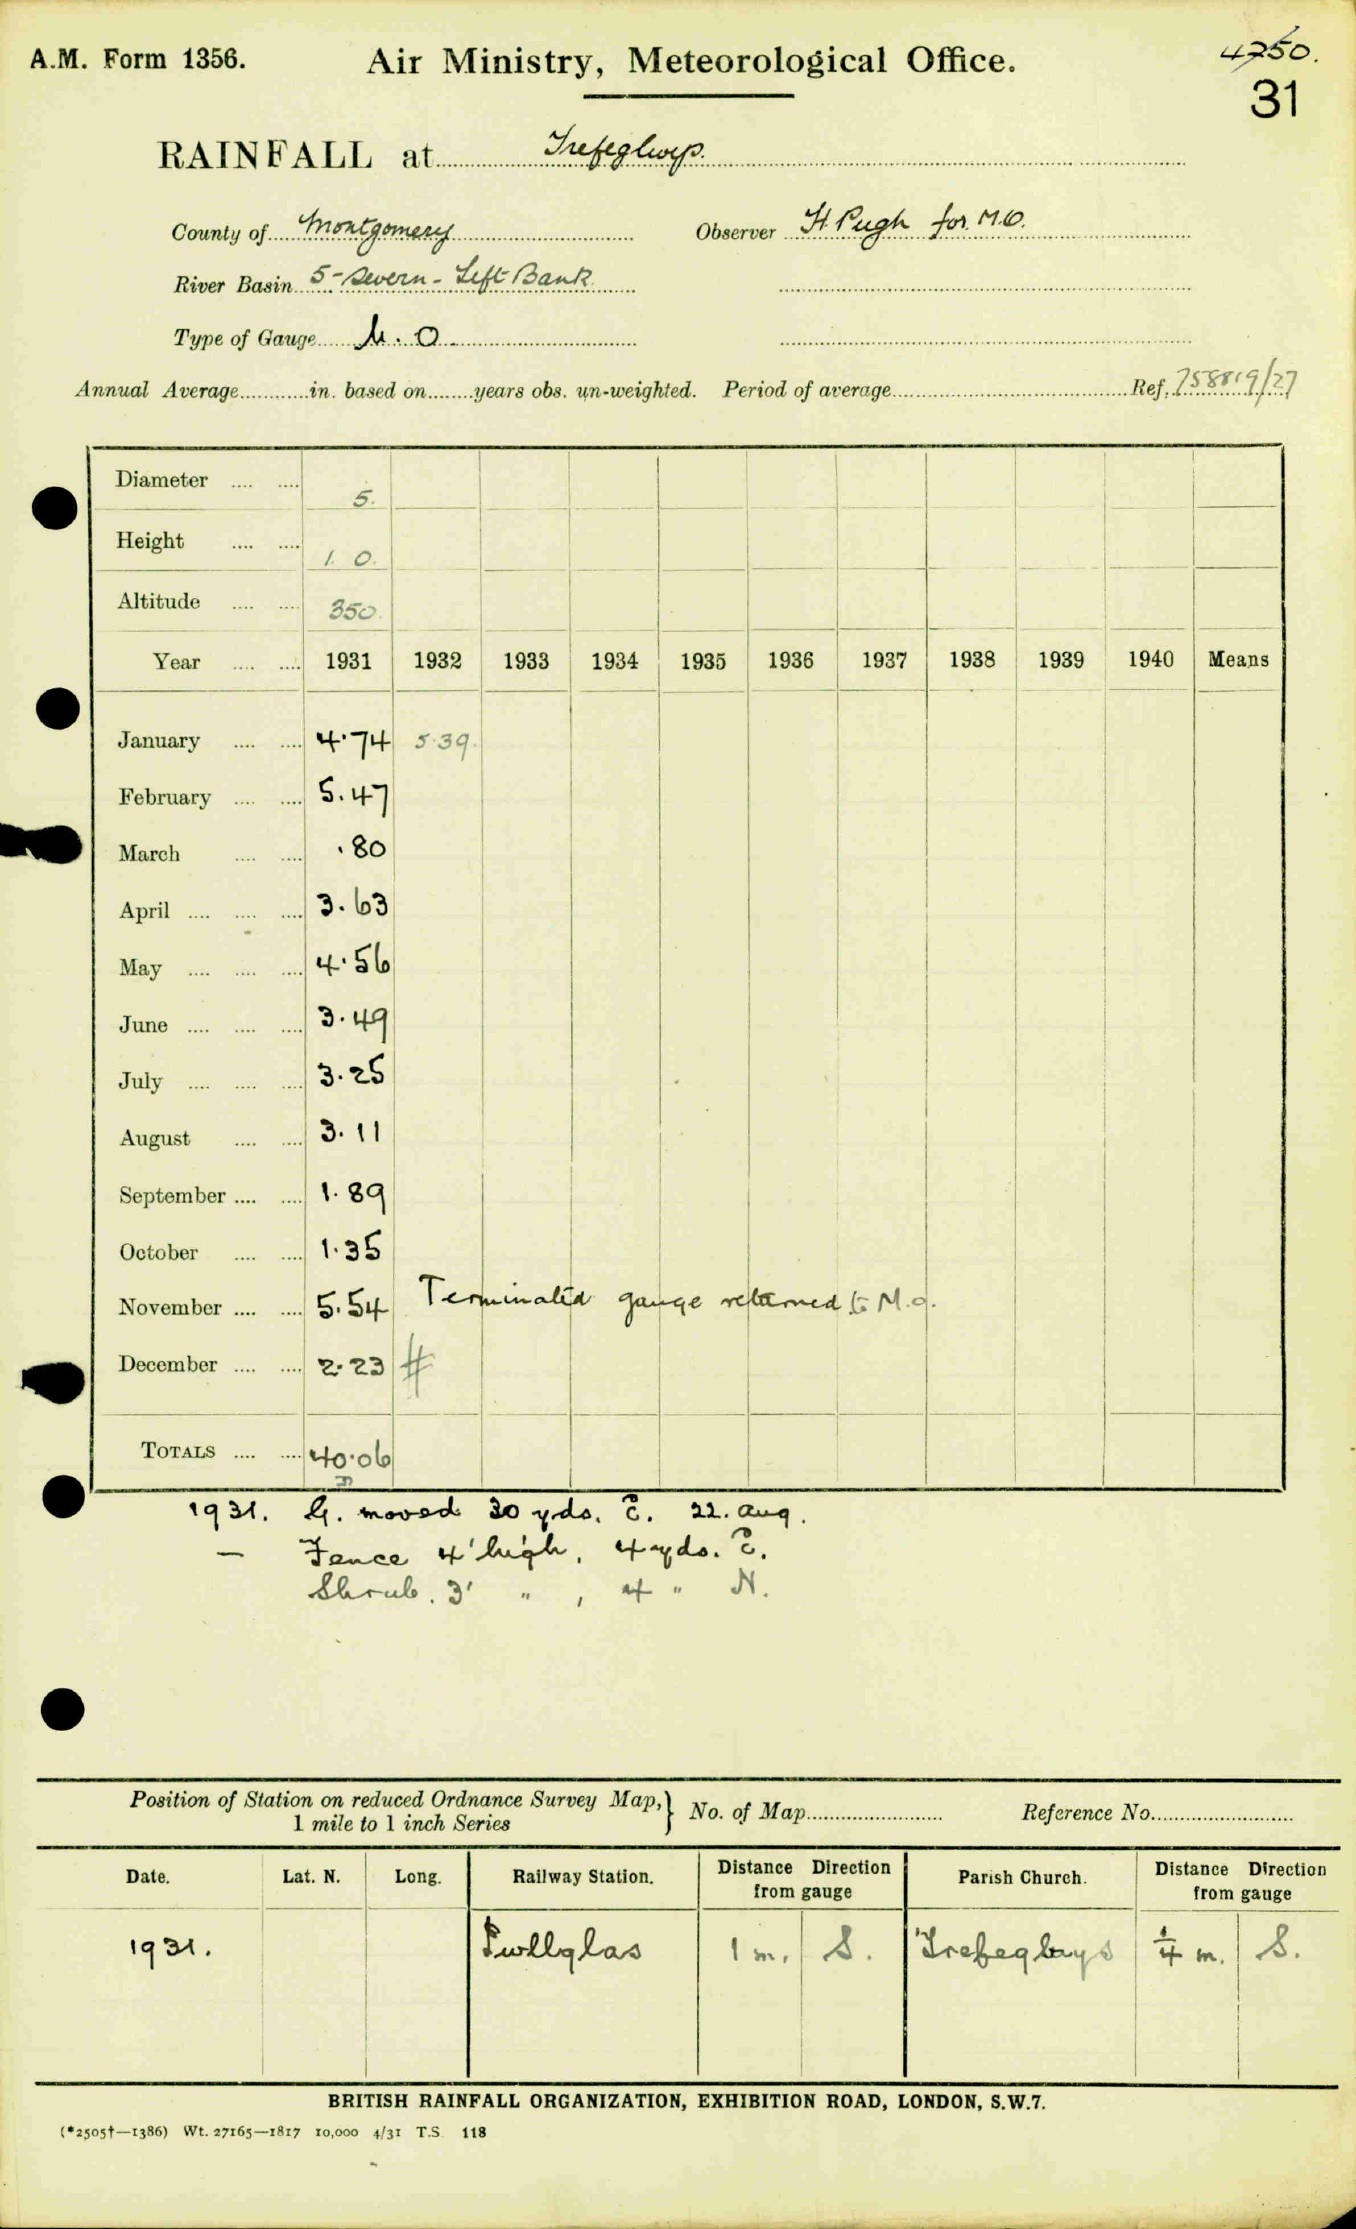 A.M. Form 1356. Air Ministry, Meteorological Office. 4250.
31
RAINFALL at Trefeglwys.
County of Montgomery Observer H. Pugh for M.O.
River Basin 5 - Severn - Left Bank
Type of Gauge M.O.
Annual Average in. based on years obs. un-weighted. Period of average Ref. 758819/27
Diameter 5.
Height 1. 0.
Altitude 350.
Year 1931 1932 1933 1934 1935 1936 1937 1938 1939 1940 Means
January 4.74 5.39.
February 5.47
March .80
April 3.63
May 4.56
June 3.49
July 3.25
August 3.11
September 1.89
October 1.35
November 5.54 Terminated gauge returned to M.O.
December 2.23 #
TOTALS 40.06
1931. G. moved 30 yds. E. 22. Aug.
— Fence 4' high, 4 yds. E.
Shrub. 3' " , 4 " N.
Position of Station on reduced Ordnance Survey Map, } No. of Map Reference No.
1 mile to 1 inch Series
Date. Lat. N. Long. Railway Station. Distance Direction from gauge Parish Church. Distance Direction from gauge
1931. Pwllglas 1 m. S. Trefeglwys 1/4 m. S.
BRITISH RAINFALL ORGANIZATION, EXHIBITION ROAD, LONDON, S.W.7.
(*2505†—1386) Wt. 27165—1817 10,000 4/31 T.S. 118